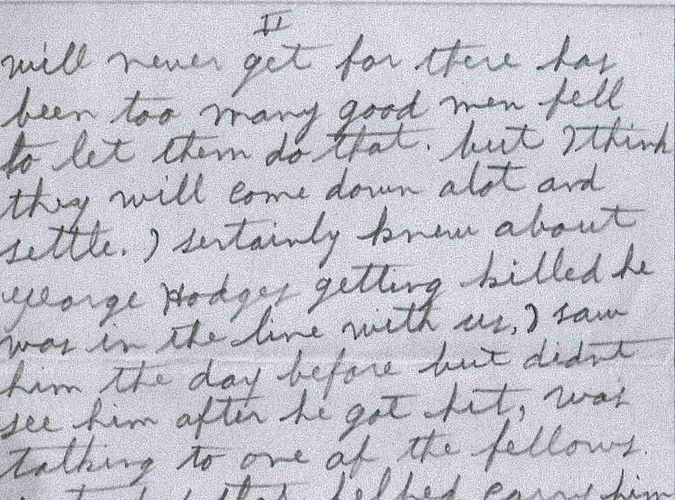 II
will never get for there has
been too many good men fell
to let them do that. but I think
they will come down alot and
settle. I sertainly knew about
George Hodges getting killed he
was in the line with us, I saw
him the day before but didnt
see him after he got hit, was
talking to one of the fellows.
that helped carry him